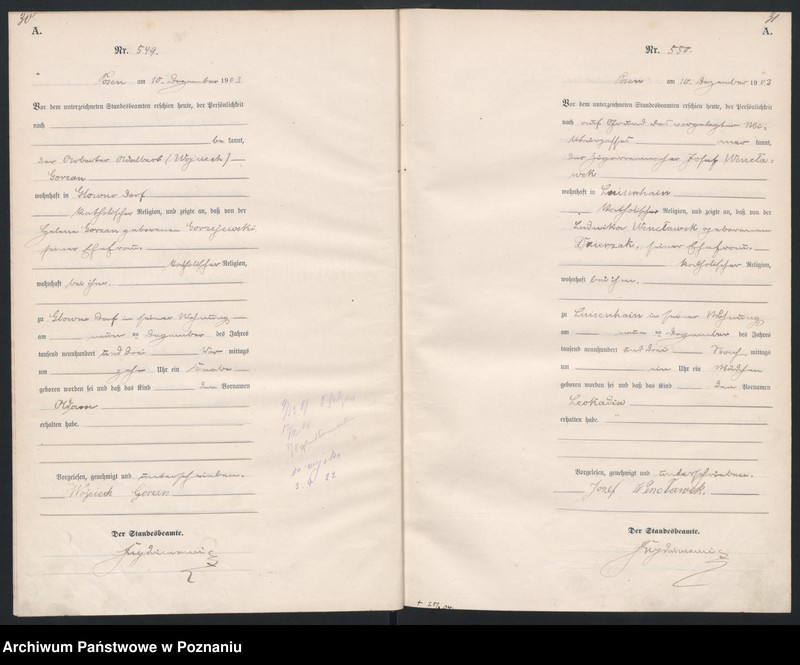 30
A.
Nr. 549.
Posen am 10. Dezember 1903
Vor dem unterzeichneten Standesbeamten erschien heute, der Persönlichkeit
nach
be kannt,
der Arbeiter Adalbert (Wojciech)
Gorzan
wohnhaft in Glowno Dorf
katholischer Religion, und zeigte an, daß von der
Helene Gorzan geborenen
seiner Ehefrau
katholischer Religion,
wohnhaft bei ihm.
zu Glowno Dorf in seiner Wohnung
am neun ten Dezember des Jahres
tausend neunhundert und drei Vor mittags
um zehn Uhr ein Knabe
geboren worden sei und daß das Kind den Vornamen
Adam
erhalten habe.
Vorgelesen, genehmigt und unterschrieben.
Wojciech Gorzan
Der Standesbeamte.
31
A.
Nr. 550.
Posen am 10. Dezember 1903
Vor dem unterzeichneten Standesbeamten erschien heute, der Persönlichkeit
nach auf Grund des vorgelegten Mi-
litärpasses aner kannt,
der Zigarrenmacher Josef Wencła-
wek
wohnhaft in Luisenhain
katholischer Religion, und zeigte an, daß von der
Ludwika Wencławek geborenen
seiner Ehefrau
katholischer Religion,
wohnhaft bei ihm.
zu Luisenhain in seiner Wohnung
am neun ten Dezember des Jahres
tausend neunhundert und drei Nach mittags
um ein Uhr ein Mädchen
geboren worden sei und daß das Kind den Vornamen
Leokadia
erhalten habe.
Vorgelesen, genehmigt und unterschrieben.
Józef Wencławek.
Der Standesbeamte.
Archiwum Państwowe w Poznaniu